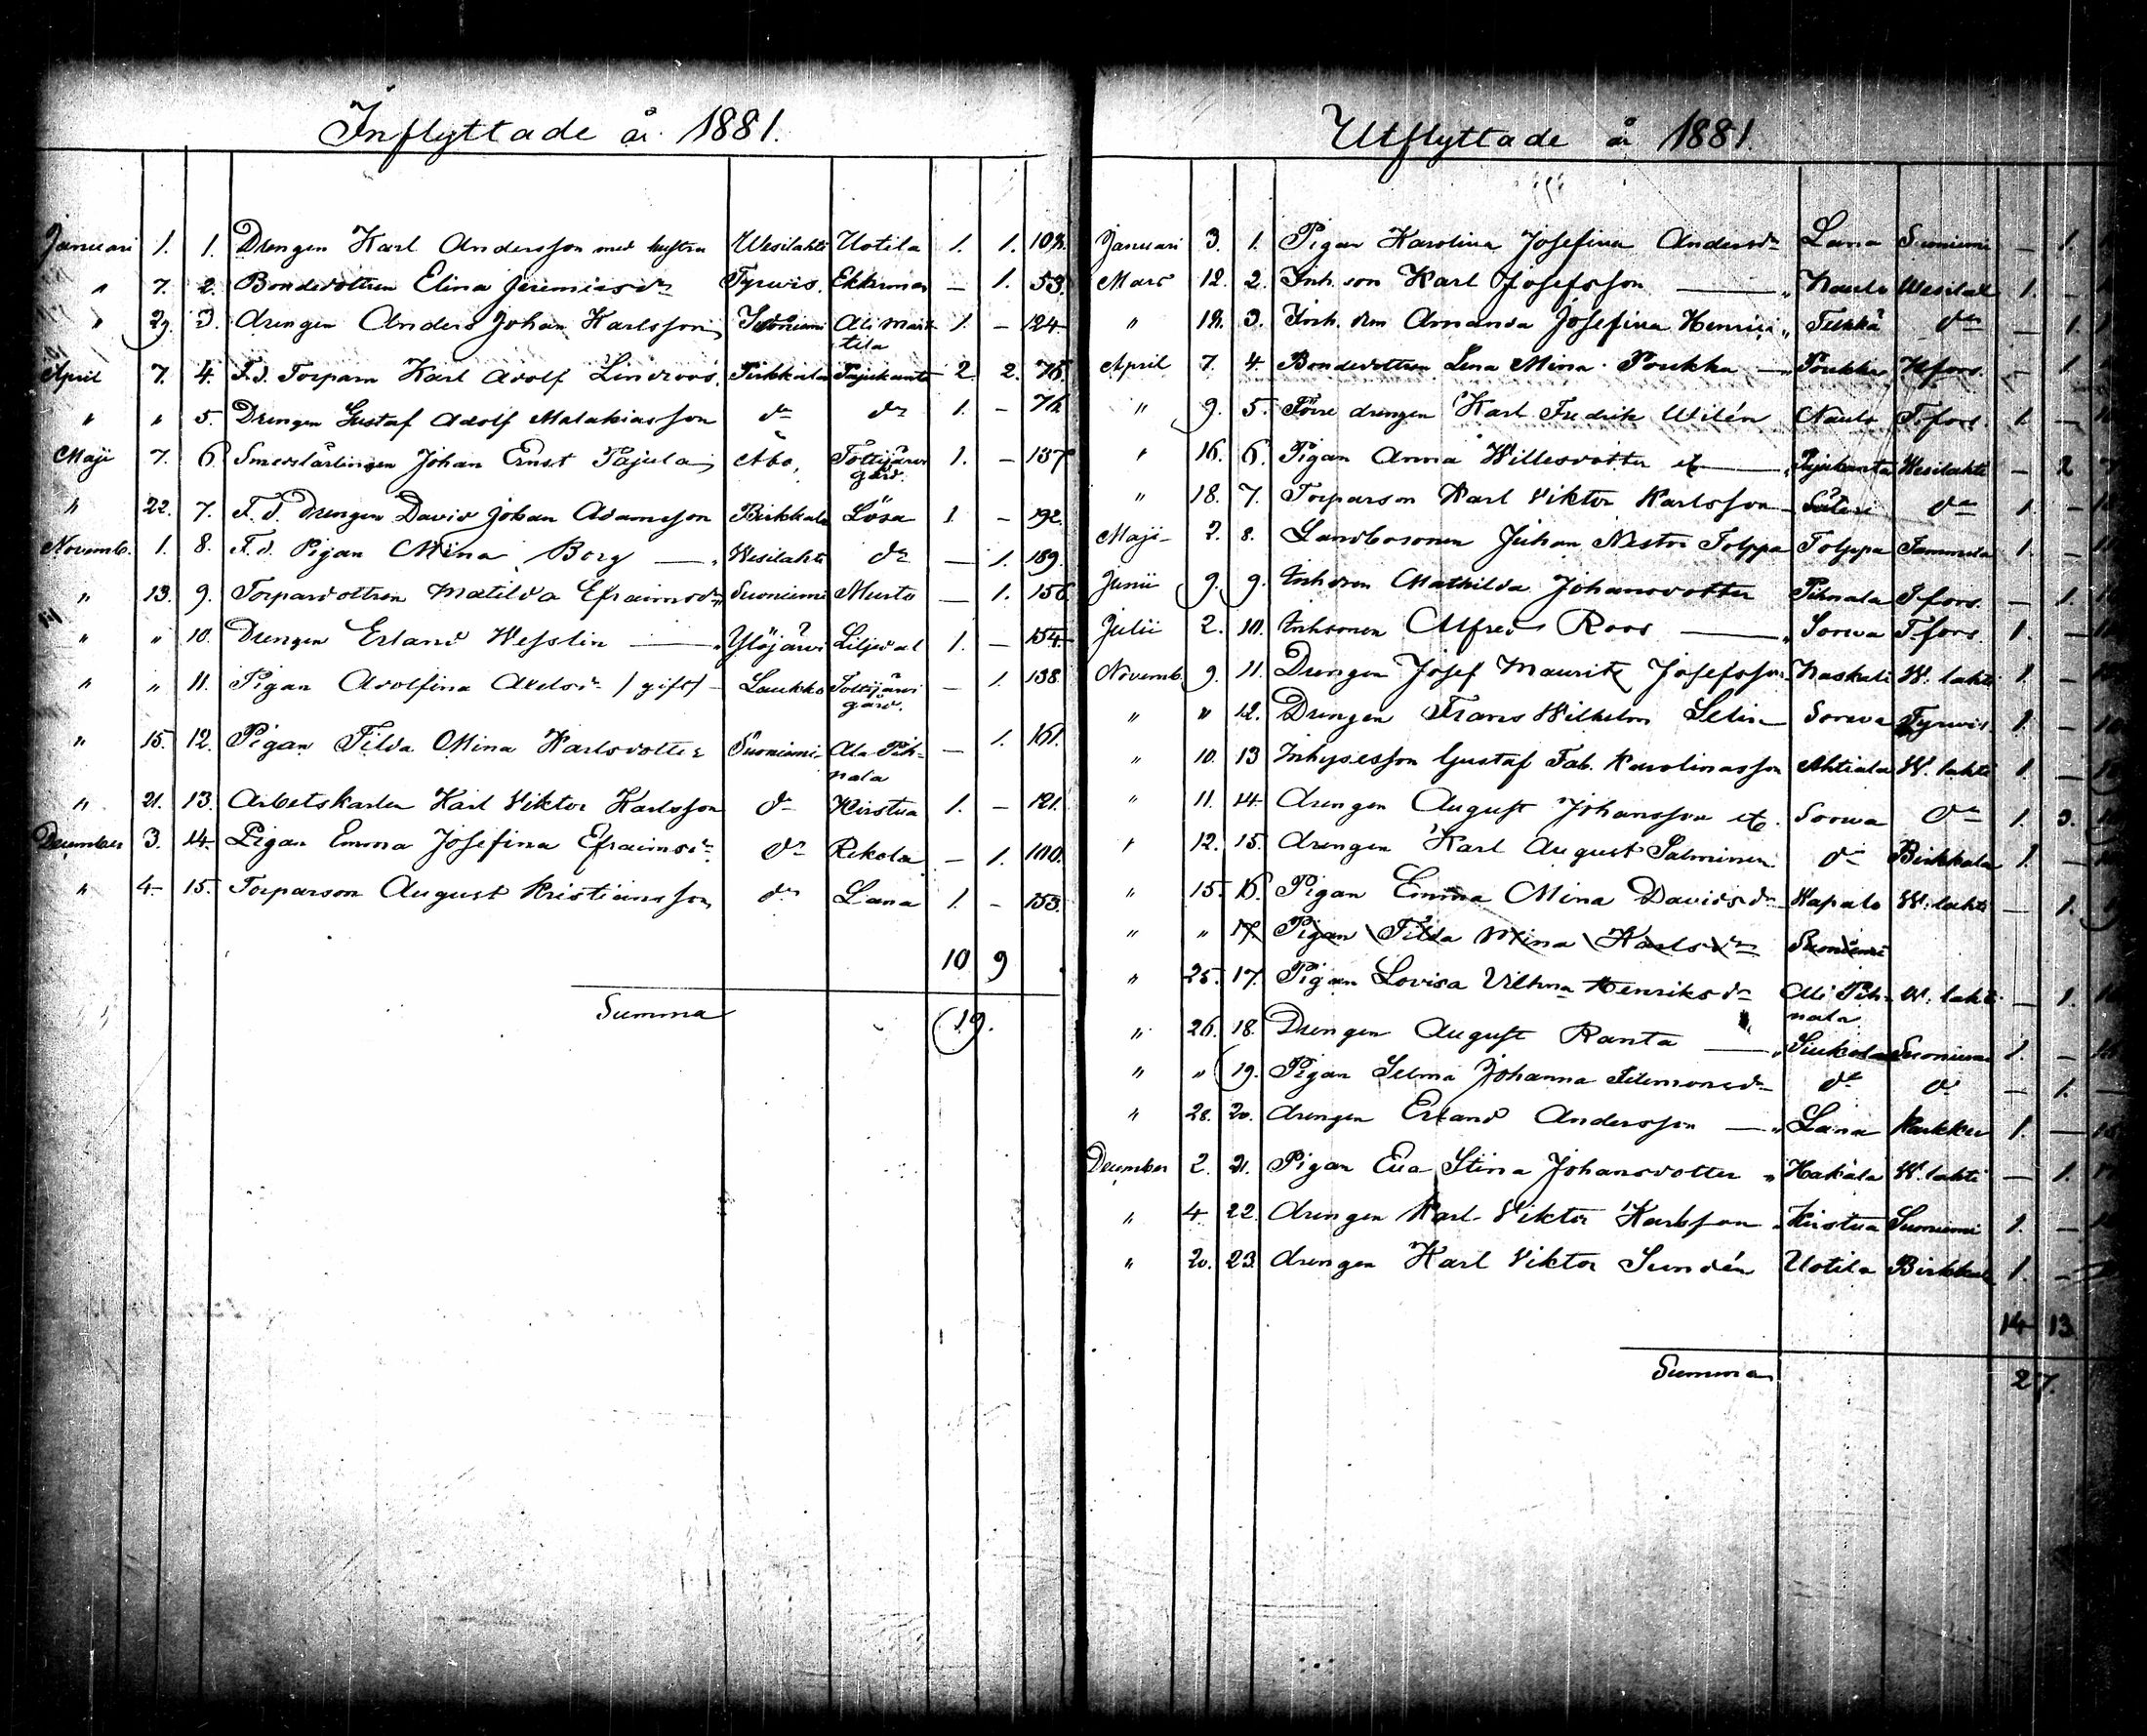 Inflyttade år 1881.
Januari 1. 1. Drengen Karl Andersson med hustru Wesilahti Uotila 1. 1. 108.
" 7. 2. Bondedottren Elina Jeremiasdr Tyrvis. Ekkimar — 1. 53.
" 29. 3. Drengen Anders Johan Karlsson Suoniemi Ali Mart- 1. — 124.
tila
April 7. 4. F.d. Torparn Karl Adolf Lindroos. Pirkkala Pajukanta 2. 2. 76.
" " 5. Drengen Gustaf Adolf Malakiasson do do 1. — 76.
Maji 7. 6. Smedslärlingen Johan Ernst Pajula Åbo, Tottijärvi 1. — 137
gård.
" 22. 7. F.d. Drengen David Johan Adamsson Birkkala Lösa 1. — 192.
Novemb. 1. 8. F.d. Pigan Mina Borg — Wesilahti do — 1. 189.
" 13. 9. Torpardottren Matilda Efraimsdr Suoniemi Mustu — 1. 156
" " 10. Drengen Erland Wesslin — Ylöjärvi Liljedal 1. — 154.
" " 11. Pigan Adolfina Axelsdr /gift/ Laukko Tottijärvi — 1. 138.
gård.
" 15. 12. Pigan Tilda Mina Karlsdotter Suoniemi Ala Pih- — 1. 161.
nala
" 21. 13. Arbetskarlen Karl Viktor Karlsson do Kirstua 1. — 121.
December 3. 14. Pigan Emma Josefina Efraimsdr do Rekola — 1. 110.
" 4. 15. Torparson August Kristiansson do Lana 1. — 153.
10 9
Summa 19.
Utflyttade år 1881.
Januari 3. 1. Pigan Karolina Josefina Andersdr Lana Suniemi — 1.
Mars 12. 2. Inh. son Karl Josefsson — Naulo Wesilal 1. —
" 12. 3. Inh. dra Amanda Josefina Henrici " Tukkä do — 1.
April 7. 4. Bondedottren Lena Mina Poukka — Poukka Hfors. — 1.
" 9. 5. Förre drengen Karl Fredrik Widén Naulo Tfors. 1. —
" 16. 6. Pigan Anna Willesdotter etc — Pajukanta Wesilahti — 2
" 18. 7. Torparson Karl Viktor Karlsson Säteri do 1. —
Maji 2. 8. Landbosonen Juhan Nestor Tolppa Tolppa Tammela 1. —
Junii 9. 9. Inhdren Mathilda Johansdotter Pihnala Tfors. — 1.
Julii 2. 10. Inhsonen Alfred Roos — Sorwa Tfors. 1. —
Novemb. 9. 11. Drengen Josef Maurits Josefsson Naskali W. lahti 1. —
" " 12. Drengen Frans Wilhelm Selin Sorwa Tyrvis. 1. —
" 10. 13 Inhysesson Gustaf Fab. Karolinasson Ahtiala W. lahti 1. —
" 11. 14. Drengen August Johansson etc. Sorwa do 1. 3.
" 12. 15. Drengen Karl August Salminen do Birkkala 1. —
" 15. 16. Pigan Emma Mina Davidsdr Kapalo W. lahti — 1.
" " 17. Pigan Tilda Mina Karlsdr Suoniemi
" 25. 17. Pigan Lovisa Vilhma Henriksdr Ali Pih- W. lahti — 1.
nala
" 26. 18. Drengen August Ranta — Siukola Suoniemi 1. —
" " 19. Pigan Selma Johanna Filemonsdr do do — 1. —
" 28. 20. Drengen Erland Andersson — Lana Karkku 1. —
December 2. 21. Pigan Eva Stina Johansdotter " Hakala W. lahti — 1.
" 4. 22. Drengen Karl Viktor Karlsson Kirstua Suoniemi 1. —
" 20. 23. Drengen Karl Viktor Sundén Uotila Birkkala 1. —
14 13
Summa 27.